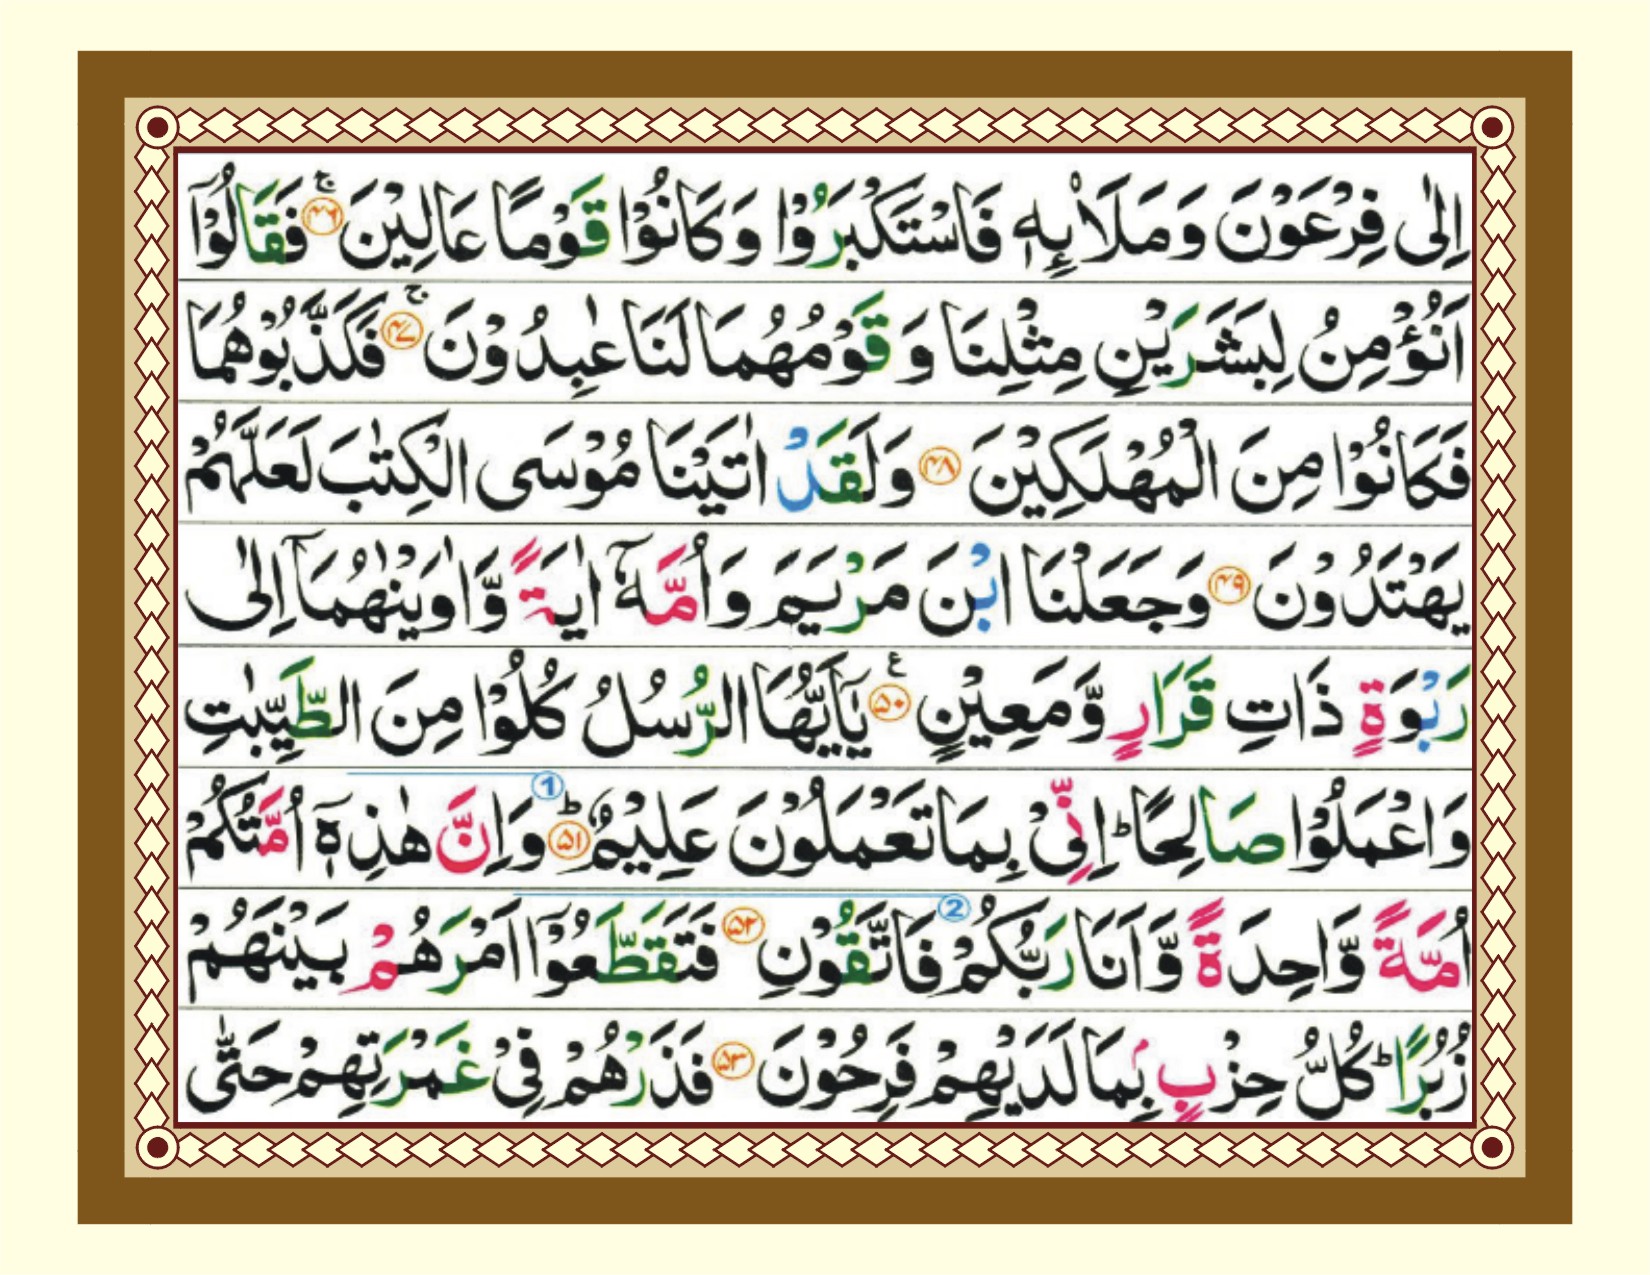 اِلٰى فِرْعَوْنَ وَمَلَا۟ىِٕهٖ فَاسْتَكْبَرُوْا وَكَانُوْا قَوْمًا عَالِيْنَ ۚ﴿۴۶﴾ فَقَالُوْۤا
اَنُؤْمِنُ لِبَشَرَيْنِ مِثْلِنَا وَقَوْمُهُمَا لَنَا عٰبِدُوْنَ ۚ﴿۴۷﴾ فَكَذَّبُوْهُمَا
فَكَانُوْا مِنَ الْمُهْلَكِيْنَ ﴿۴۸﴾ وَلَقَدْ اٰتَيْنَا مُوْسَى الْكِتٰبَ لَعَلَّهُمْ
يَهْتَدُوْنَ ﴿۴۹﴾ وَجَعَلْنَا ابْنَ مَرْيَمَ وَاُمَّهٗۤ اٰيَةً وَّاٰوَيْنٰهُمَاۤ اِلٰى
رَبْوَةٍ ذَاتِ قَرَارٍ وَّمَعِيْنٍ ۧ﴿۵۰﴾ يٰۤاَيُّهَا الرُّسُلُ كُلُوْا مِنَ الطَّيِّبٰتِ
وَاعْمَلُوْا صَالِحًا ؕ اِنِّىْ بِمَا تَعْمَلُوْنَ عَلِيْمٌ ؕ﴿۵۱﴾ 1 وَاِنَّ هٰذِهٖۤ اُمَّتُكُمْ
اُمَّةً وَّاحِدَةً وَّاَنَا رَبُّكُمْ 2 فَاتَّقُوْنِ ﴿۵۲﴾ فَتَقَطَّعُوْۤا اَمْرَهُمْ بَيْنَهُمْ
زُبُرًا ؕ كُلُّ حِزْبٍۭ بِمَا لَدَيْهِمْ فَرِحُوْنَ ﴿۵۳﴾ فَذَرْهُمْ فِىْ غَمْرَتِهِمْ حَتّٰى